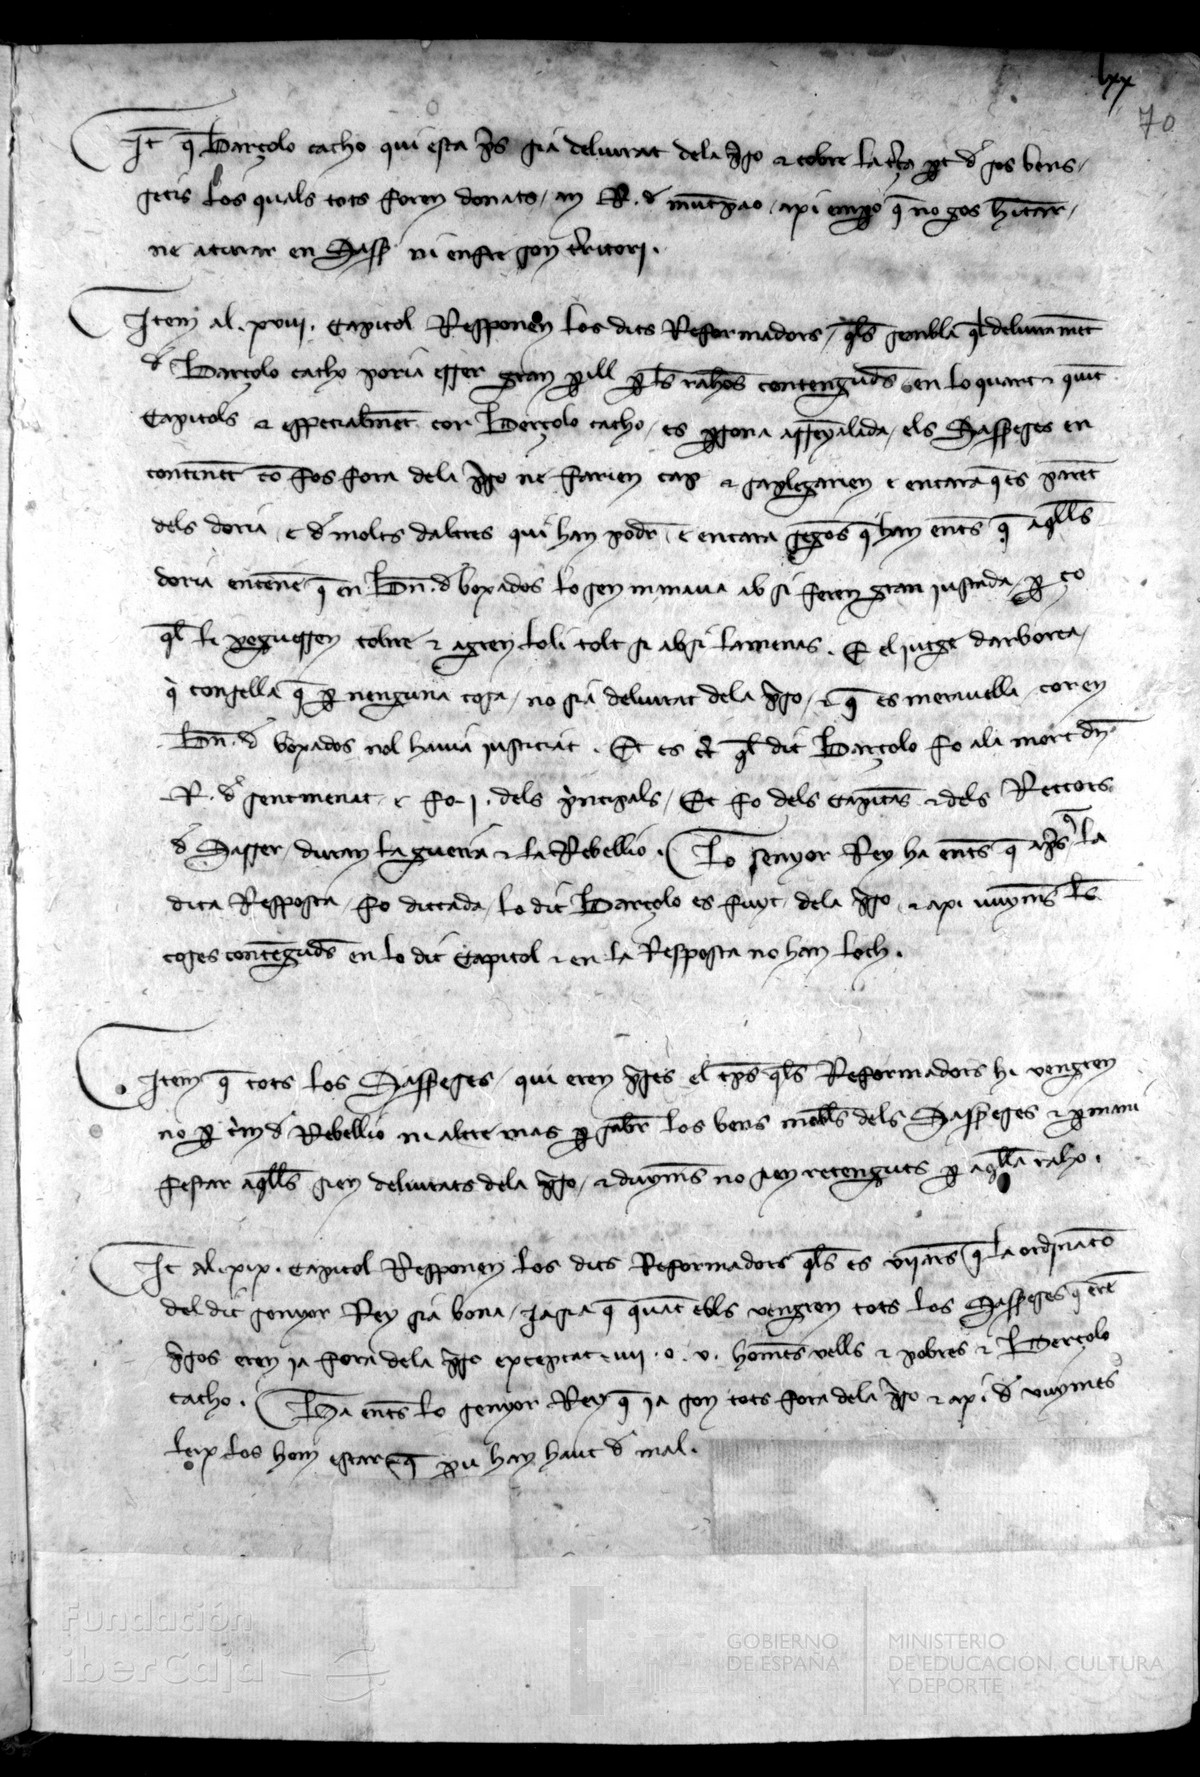 lxx
70
It q̄ Barçolo catho qui esta p̄s sia deliurat dela p̄so ⁊ cobre la t̄ça p̄t d' sos bens
setis los quals tots foren donats an R. d' muntpao axi empo q̄ no gos h̄itar
ne aturar en Sass̄ ni enfre son t̄ritori.
Item al .xviij. Capitol Responen los dits Reformadors / q̄ls sembla q̄l deliuram̄et
d' Barçolo catho poria esser gran p̄ill p̄ l̄s rahōs contenḡud̄s en lo quart ⁊ quīt
Capitols ⁊ especialm̄et cor Berçolo catho es p̄sona assen̄yalada els Sass̄eses en
contin̄et cō fos fora dela p̄so ne farien cap ⁊ saplegarien e encara q̄ es parēt
dels doria e d' molts daltres qui han podr̄ e encara segons q̄ han ent̄s q̄ aq̄lls
doria enc̄ene q̄ en Bn̄. d' boxados lo sen manaua ab si feren gran justada p̄ ço
q̄l li peguessen tolre ⁊ agren loli tolt si absi lamenas. E el jutge darborea
q̄ consella q̄ p̄ nenguna cosa no sia deliurat dela p̄so ⁊ q̄ es merauella cor en
Bn̄. d' boxados nol hauia justiciat. Et es c̄t q̄l dit Barçolo fo ala mort dn̄
R. d' sentmenat e fo .j. dels p̄ncipals / Et fo dels Capitās ⁊ dels Rettors
d' Sasser duran la guerra ⁊ la Rebellio. Lo senyor Rey ha ent̄s q̄ ap̄s q̄ la
dita Resposta fo dictada lo dit Barçolo es fuyt dela p̄so ⁊ axi vuym̄s l̄s
coses contenḡud̄s en lo dit Capitol ⁊ en la Resposta no han loch.
Item q̄ tots los Sass̄eses qui eren p̄ses el tp̄s q̄ls Reformadors hi vengren
no p̄ c̄m d' Rebellio ni altre mas p̄ sab̄r los bens mobl̄s dels Sass̄eses ⁊ p̄ mani
festar aq̄lls sien deliurats dela p̄so ⁊ duym̄s no sien retenguts p̄ aq̄lla raho.
It al .xix. Capitol Responen los dits Reformadors q̄ls es viiar̄s q̄ la ordinatō
del dit senyor Rey sia bona jasia q̄ quāt ells vengren tots los Sass̄eses q̄ erē
p̄sos eren ja fora dela p̄so exceptat .iiij. o .v. hom̄es vells ⁊ pobres ⁊ Berçolo
catho. Ha ent̄s lo senyor Rey q̄ ja son tots fora dela p̄so ⁊ axi d' vuymes
leix los hom estar q̄ p̄u han haut d' mal.
Fundación
iberCaja
GOBIERNO
DE ESPAÑA
MINISTERIO
DE EDUCACIÓN, CULTURA
Y DEPORTE